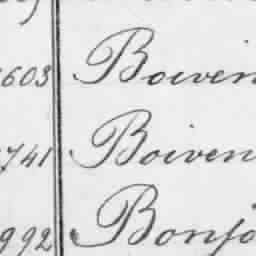 603 Boiven
741 Boiven
992 Bonjo